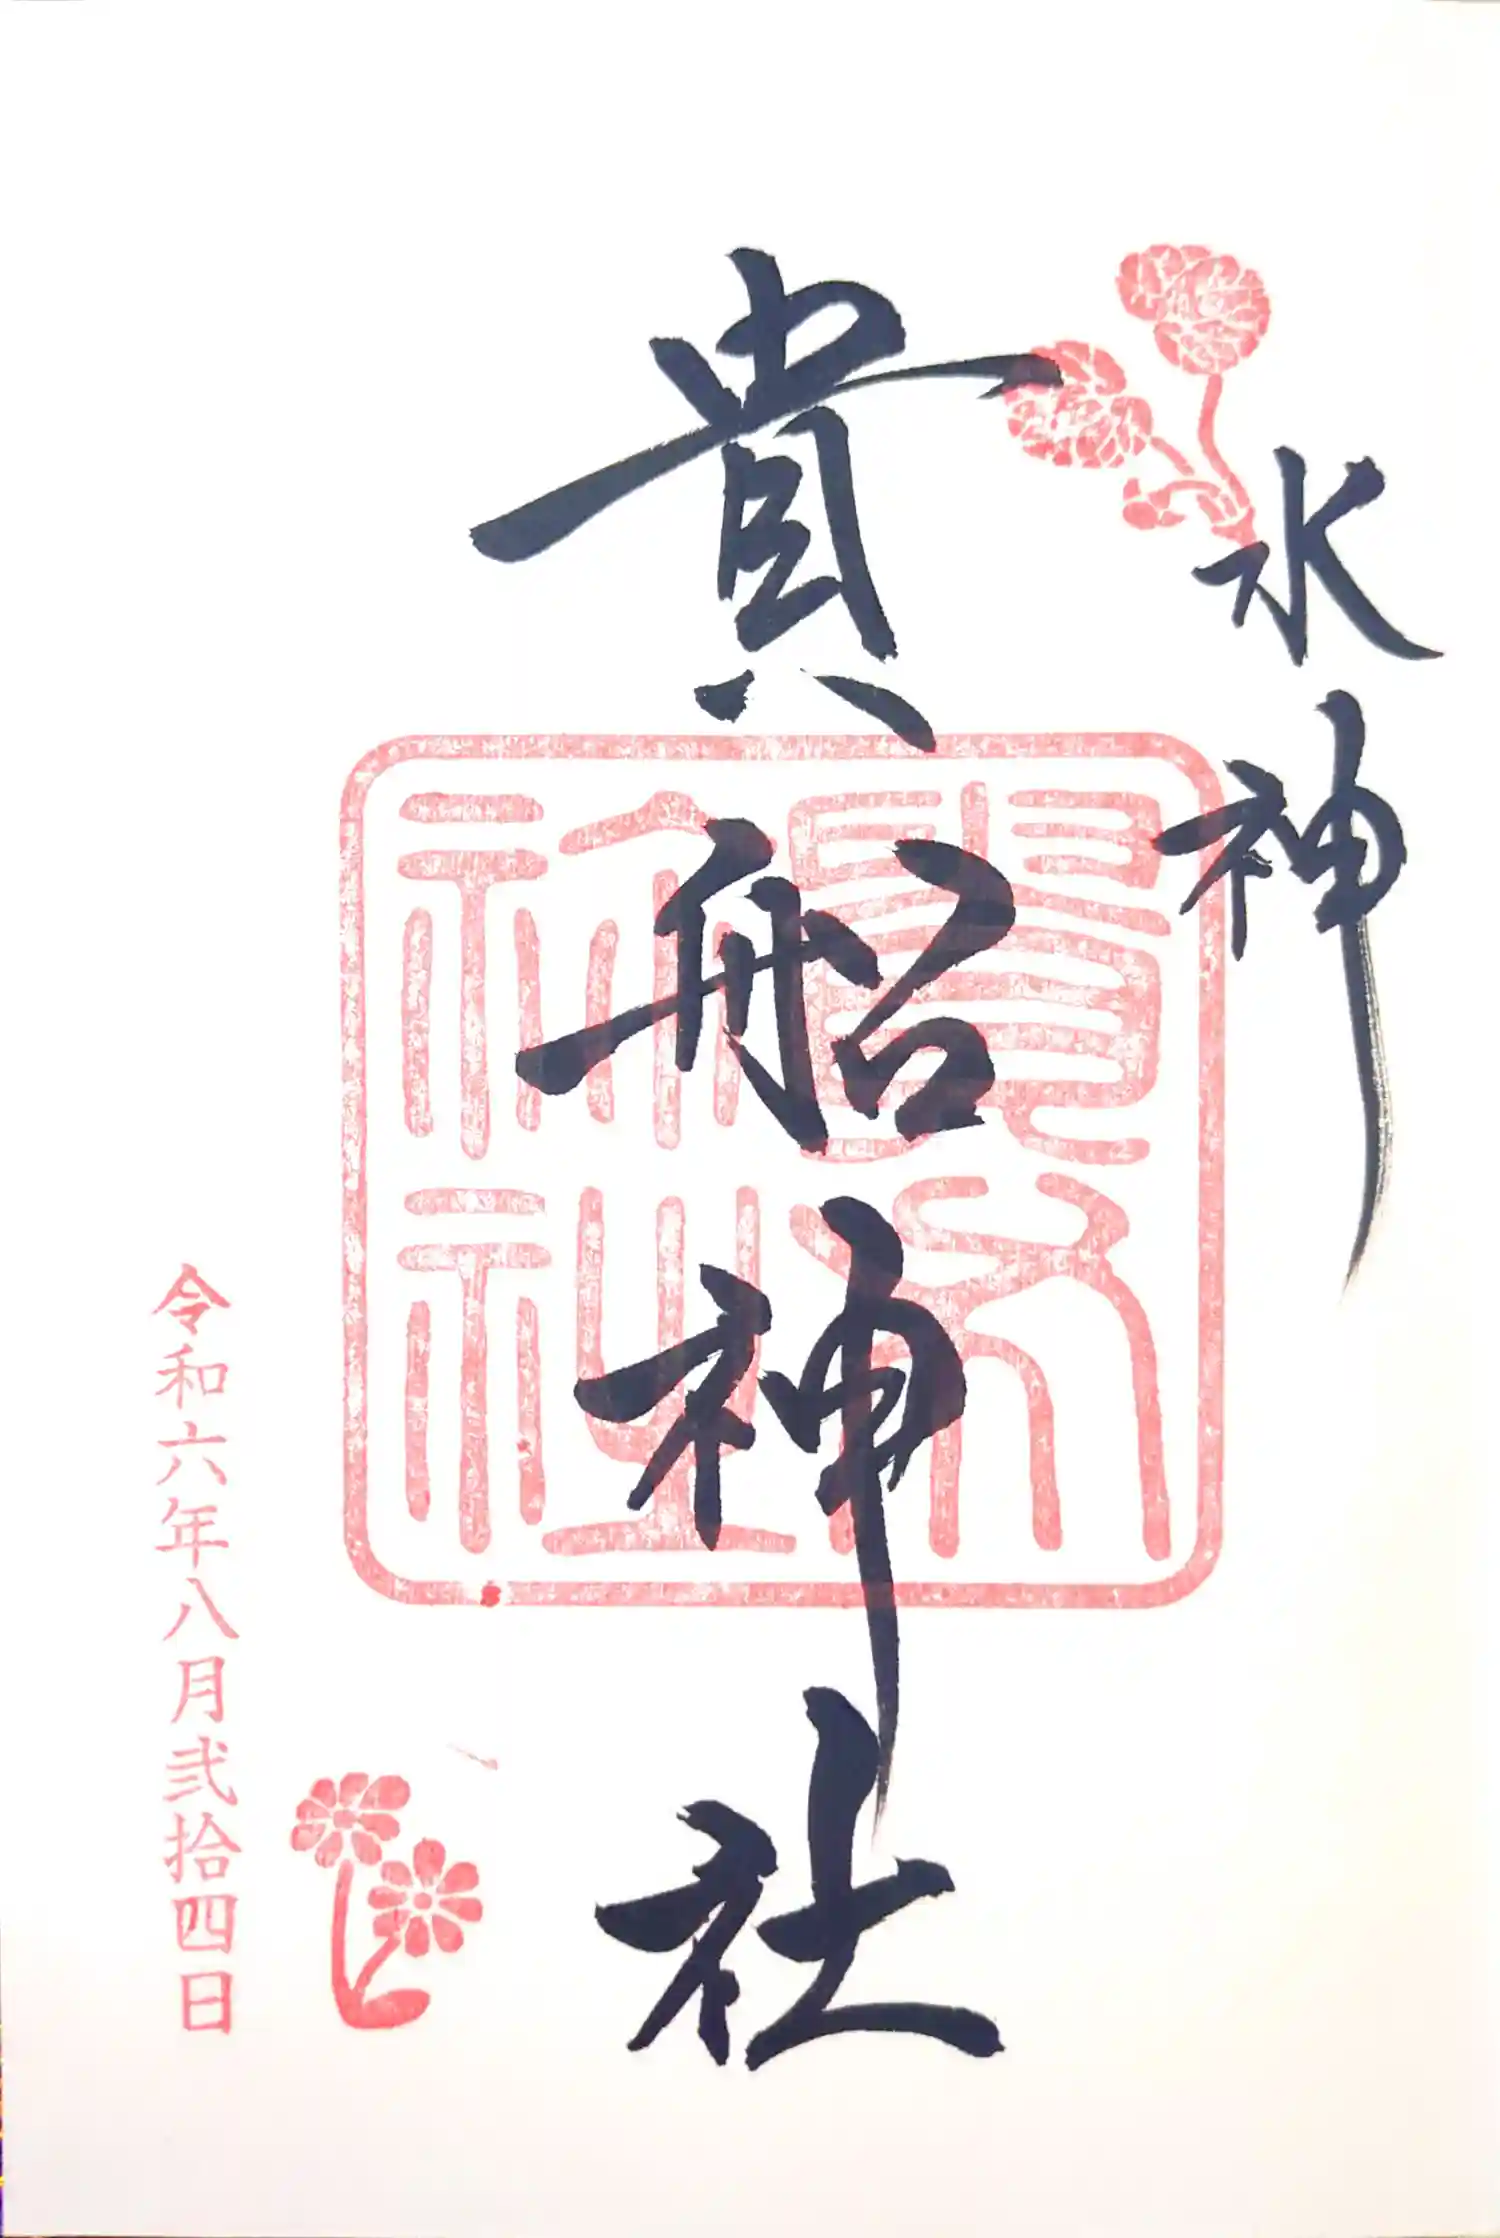 水神
貴船神社
令和六年八月弐拾四日